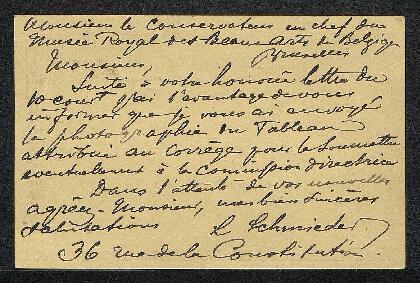 Monsieur le Conservateur en chef du
Musée Royal des Beaux Arts de Belgique
Bruxelles
Monsieur,
Suite à votre honorée lettre du
10 court j'ai l'avantage de vous
informer que je vous ai envoyé
la photographie du Tableau
attribué au Corrège pour le soumettre
eventuellement à la Commission directrice
Dans l'attente de vos nouvelles
agréez, Monsieur, mes bien sincères
salutations
L Schmieder
36 rue de la Constitution.